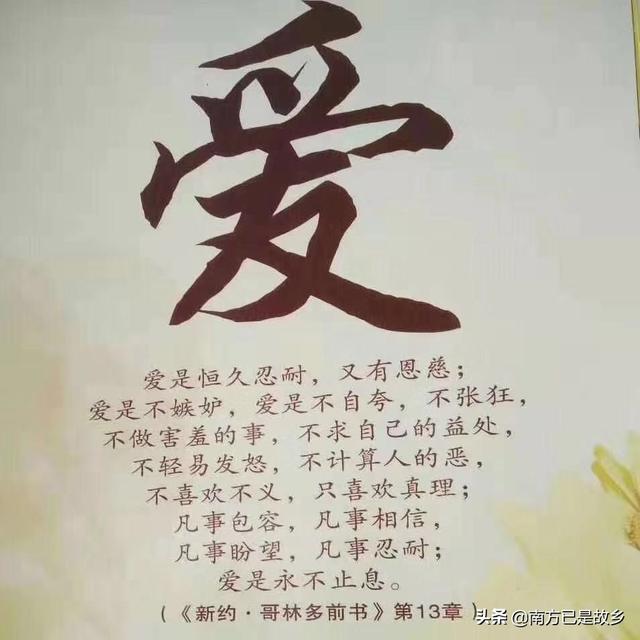 爱
爱是恒久忍耐，又有恩慈；
爱是不嫉妒，爱是不自夸，不张狂，
不做害羞的事，不求自己的益处，
不轻易发怒，不计算人的恶，
不喜欢不义，只喜欢真理；
凡事包容，凡事相信，
凡事盼望，凡事忍耐；
爱是永不止息。
（《新约·哥林多前书》第13章）
头条 @南方已是故乡